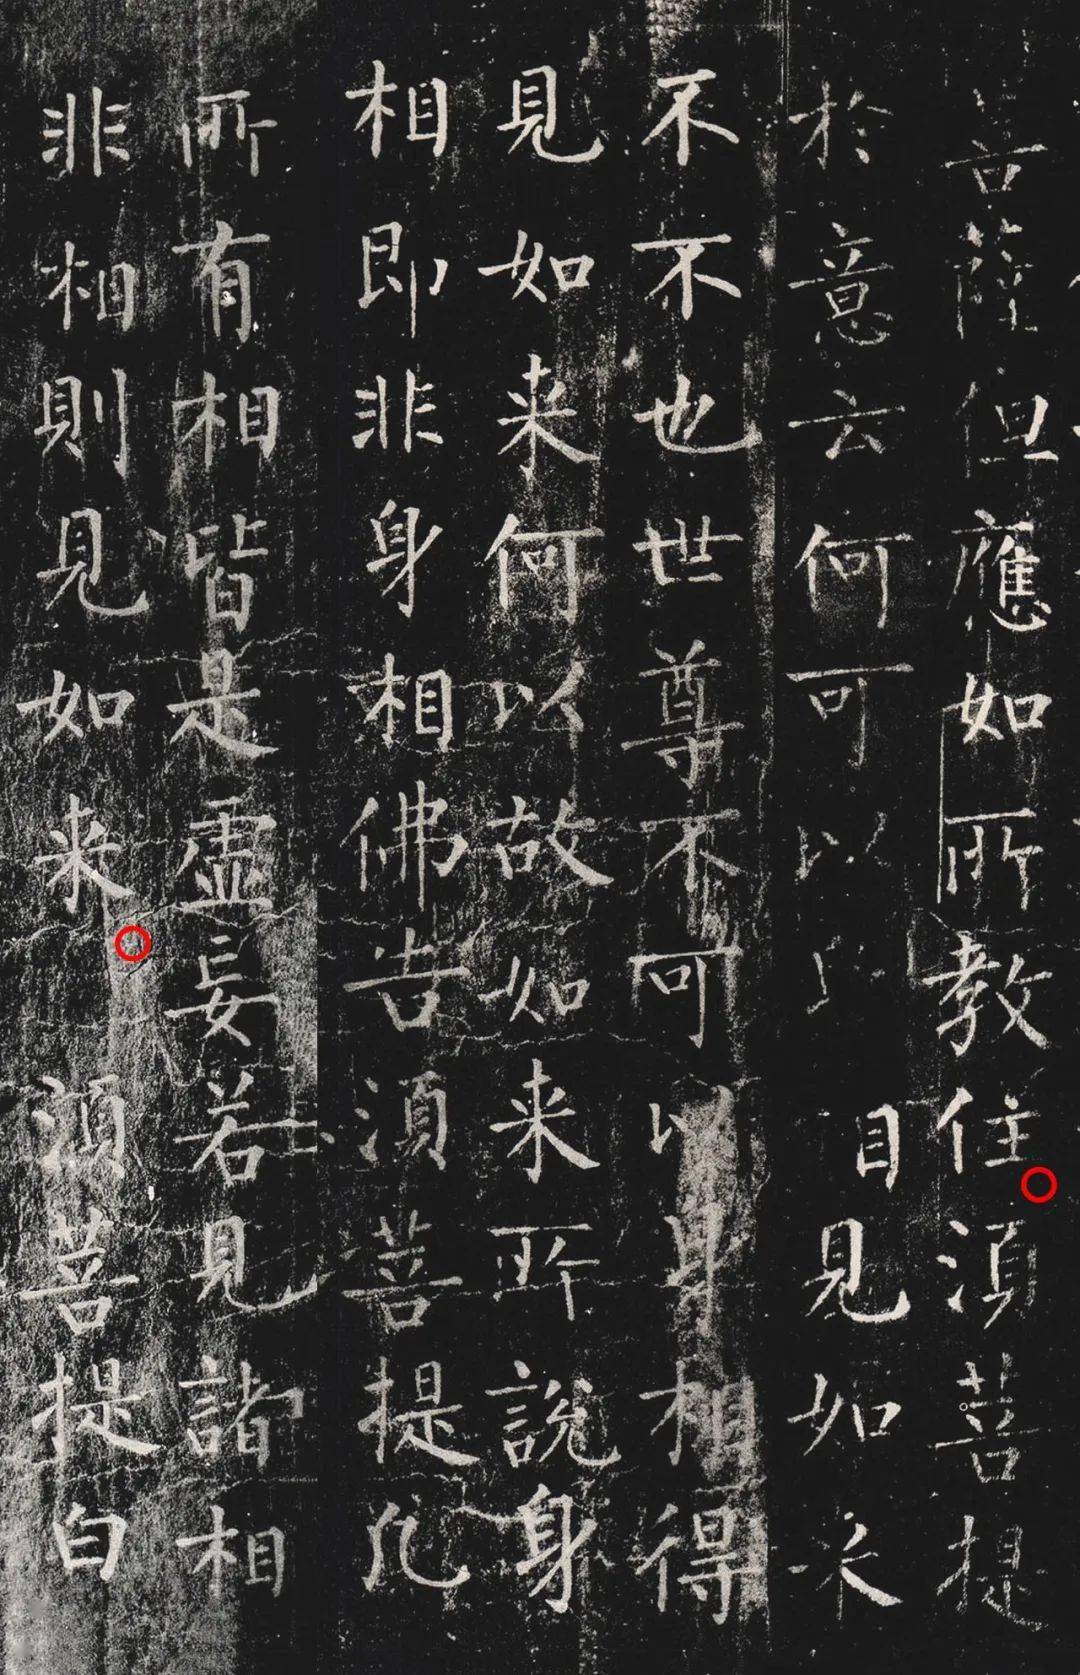 菩薩但應如所教住須菩提
於意云何可以相見如来
不不也世尊不可以身相得
見如来何以故如来所說身
相即非身相佛告須菩提凡
所有相皆是虛妄若見諸相
非相則見如来須菩提白